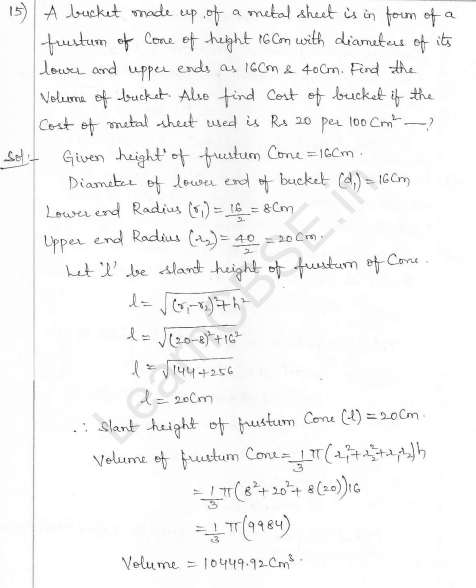 15) A bucket made up of a metal sheet is in form of a
frustum of Cone of height 16Cm with diameters of its
lower and upper ends as 16Cm & 40Cm. Find the
Volume of bucket. Also find Cost of bucket if the
Cost of metal sheet used is Rs 20 per 100 Cm² —?
Sol:- Given height of frustum Cone = 16Cm.
Diameter of lower end of bucket (d₁) = 16Cm
Lower end Radius (r₁) = 16/2 = 8Cm
Upper end Radius (r₂) = 40/2 = 20Cm.
Let 'l' be slant height of frustum of Cone.
l = √((r₁-r₂)²+h²)
l = √((20-8)²+16²)
l = √(144+256)
l = 20Cm
∴ Slant height of frustum Cone (l) = 20Cm.
Volume of frustum Cone = 1/3 π(r₁²+r₂²+r₁r₂)h
= 1/3 π(8²+20²+8(20))16
= 1/3 π(9984)
Volume = 10449.92Cm³.
LearnCBSE.in